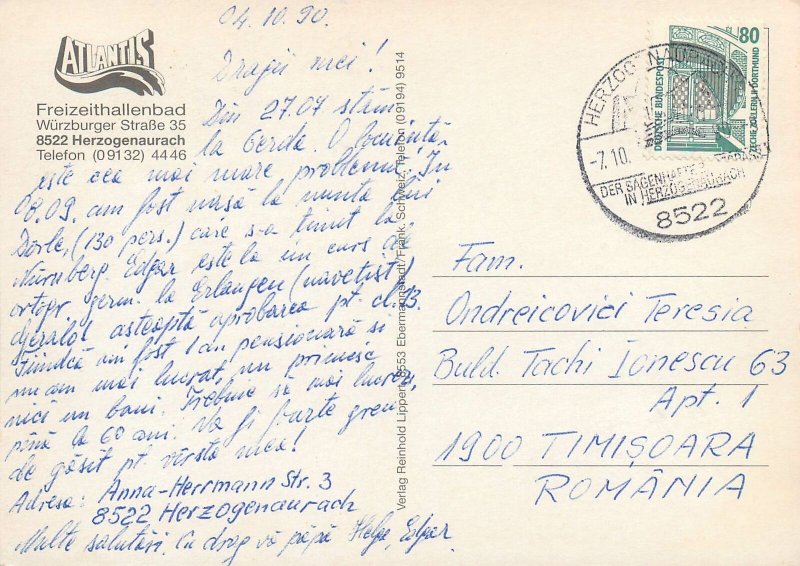 04.10.90
ATLANTIS
Freizeithallenbad
Würzburger Straße 35
8522 Herzogenaurach
Telefon (09132) 4446
Dragii mei!
Din 27.07 stăm
la Gerda. O locuință
este cea mai mare problemă. În
08.09. am fost nașă la nunta lui
Dorle, (130 pers.) care s-a ținut la
Nürnberg. Edgar este la un curs de
ortogr. germ. la Erlangen (navetist)
așteaptă aprobarea pt. cl. 13.
Fiindcă am fost 1 an pensionară și
nu am mai lucrat, nu primesc
nici un ban. Trebuie să mai lucrez
până la 60 ani. Va fi foarte greu
de găsit pt. vârsta mea!
Adresa: Anna-Herrmann Str. 3
8522 Herzogenaurach
Multe salutări, Cu drag vă pupă Helga, Edgar
Verlag Reinhold Lippert, 8553 Ebermannstadt/Fränk. Schweiz, Telefon (09194) 9514
80
DEUTSCHE BUNDESPOST
ZECHE ZOLLERN II · DORTMUND
HERZOGENAURACH
-7.10.
DER SAGENHAFTE
IN HERZOGENAURACH
8522
Fam.
Ondreicovici Teresia
Buld. Tachi Ionescu 63
Apt. 1
1900 TIMIȘOARA
ROMÂNIA